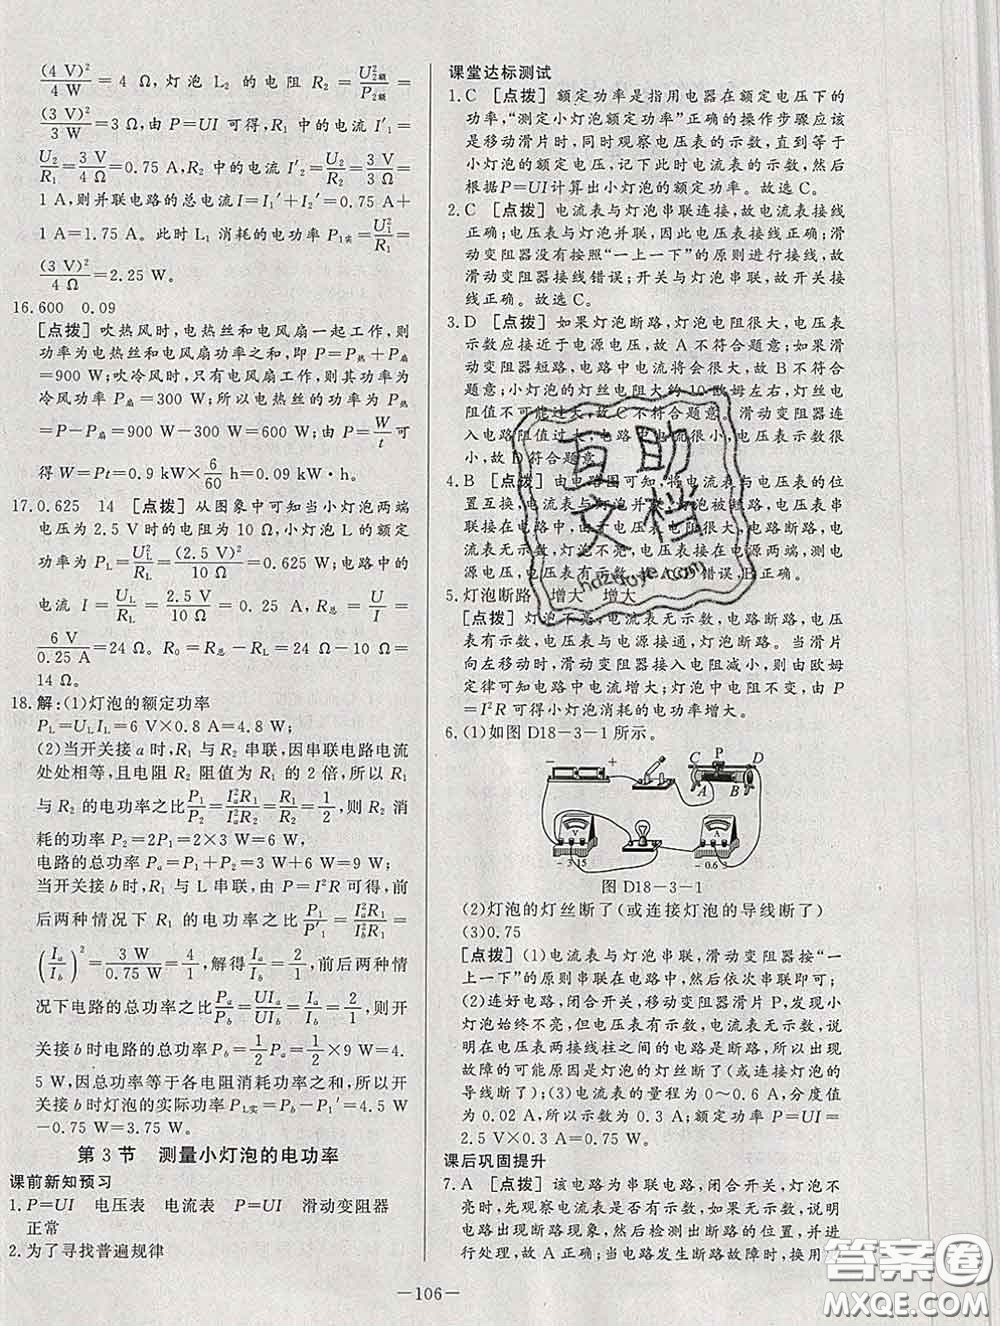 (4 V)²/4 W = 4 Ω,灯泡 L₂ 的电阻 R₂ = U²₂额/P₂额 =
(3 V)²/3 W = 3 Ω,由 P=UI 可得,R₁ 中的电流 I′₁ =
U₂/R₁ = 3 V/4 Ω = 0.75 A,R₂ 中的电流 I′₂ = U₂/R₂ = 3 V/3 Ω =
1 A,则并联电路的总电流 I=I₁′+I₂′=0.75 A+
1 A=1.75 A。此时 L₁ 消耗的电功率 P₁实 = U₂²/R₁ =
(3 V)²/4 Ω = 2.25 W。
16.600 0.09
[点拨] 吹热风时,电热丝和电风扇一起工作,则
功率为电热丝和电风扇功率之和,即 P=P热+P扇
=900 W;吹冷风时,只有电风扇工作,则其功率为
冷风功率 P扇=300 W;所以电热丝的功率为 P热
=P-P扇=900 W-300 W=600 W;由 P=W/t 可
得 W=Pt=0.9 kW×6/60 h=0.09 kW·h。
17.0.625 14 [点拨] 从图象中可知当小灯泡两端
电压为 2.5 V 时的电阻为 10 Ω,小灯泡 L 的额定
功率为 P_L=U_L²/R_L=(2.5 V)²/10 Ω=0.625 W;电路中的
电流 I=U_L/R_L=2.5 V/10 Ω=0.25 A,R总=U/I=
6 V/0.25 A=24 Ω。R₀=R总-R_L=24 Ω-10 Ω=
14 Ω。
18.解:(1)灯泡的额定功率
P_L=U_L I_L=6 V×0.8 A=4.8 W;
(2)当开关接 a 时,R₁ 与 R₂ 串联,因串联电路电流
处处相等,且电阻 R₂ 阻值为 R₁ 的 2 倍,所以 R₁
与 R₂ 的电功率之比 P₁/P₂=I²ₐR₁/I²ₐR₂=R₁/R₂=1/2,则 R₂ 消
耗的功率 P₂=2P₁=2×3 W=6 W,
电路的总功率 Pₐ=P₁+P₂=3 W+6 W=9 W;
当开关接 b 时,R₁ 与 L 串联,由 P=I²R 可得,前
后两种情况下 R₁ 的电功率之比 P₁/P′₁=I²ₐR₁/I²_bR₁=
(Iₐ/I_b)²=3 W/0.75 W=4/1,解得 Iₐ/I_b=2/1,前后两种情
况下电路的总功率之比 Pₐ/P_b=UIₐ/UI_b=Iₐ/I_b=2/1,则开
关接 b 时电路的总功率 P_b=1/2Pₐ=1/2×9 W=4.
5 W,因总功率等于各电阻消耗功率之和,所以开
关接 b 时灯泡的实际功率 P_L实=P_b-P₁′=4.5 W
-0.75 W=3.75 W。
第 3 节 测量小灯泡的电功率
课前新知预习
1.P=UI 电压表 电流表 P=UI 滑动变阻器
正常
2.为了寻找普遍规律
课堂达标测试
1.C [点拨] 额定功率是指用电器在额定电压下的
功率,“测定小灯泡额定功率”正确的操作步骤应该
是移动滑片时,同时观察电压表的示数,直到等于
小灯泡的额定电压,记下此时电流表的示数,然后
根据 P=UI 计算出小灯泡的额定功率。故选 C。
2.C [点拨] 电流表与灯泡串联连接,故电流表接线
正确;电压表与灯泡并联,因此电压表接线正确;滑
动变阻器没有按照“一上一下”的原则进行接线,故
滑动变阻器接线错误;开关与灯泡串联,故开关接
线正确。故选 C。
3.D [点拨] 如果灯泡断路,灯泡电阻很大,电压表
示数应接近于电源电压,故 A 不符合题意;如果滑
动变阻器短路,电路中电流将会很大,故 B 不符合
题意;小灯泡的灯丝电阻大约 10 欧姆左右,灯丝
电阻值不可能过大,故 C 不符合题意。滑动变阻器连
入电路阻值过大,电路中电流很小,电压表示数很
小,故 D 符合题意。
4.B [点拨] 由电路图可知,将电流表与电压表的位
置互换,电流表与灯泡并联,电压表与滑动变阻器串
联接在电路中,电压表电阻很大,电路断路,电
流表无示数,灯泡不亮,电压表接近电源两端,测电
源电压,电压表有示数,故 A、C、D 错误,B 正确。
5.灯泡断路 增大 增大
[点拨] 灯泡不亮,电流表无示数,电路断路,电压
表有示数,电压表与电源接通,灯泡断路。当滑片
向左移动时,滑动变阻器接入电阻减小,则由欧姆
定律可知电路中电流增大;灯泡电阻不变,由 P
=I²R 可得小灯泡消耗的电功率增大。
6.(1)如图 D18-3-1 所示。
- +
C P D
A B
V
- 3 15
A
- 0.6 3
图 D18-3-1
(2)灯泡的灯丝断了(或连接灯泡的导线断了)
(3)0.75
[点拨] (1)电流表与灯泡串联,滑动变阻器按“一
上一下”的原则串联在电路中,然后依次串联即可;
(2)连好电路,闭合开关,移动变阻器滑片 P,发现小
灯泡始终不亮,但电压表有示数,电流表无示数,说
明电压表两接线柱之间的电路是断路,所以出现
故障的可能原因是灯泡的灯丝断了(或连接灯泡的
导线断了);(3)电流表的量程为 0~0.6 A,分度值
为 0.02 A,所以示数为 0.3 A;额定功率 P=UI=
2.5 V×0.3 A=0.75 W。
课后巩固提升
7.A [点拨] 该电路为串联电路,闭合开关,灯泡不
亮时,先观察电流表是否有示数,如果无示数,说明
电路出现断路现象,然后检测出断路的位置,并进
行处理,故 A 正确;当电路发生断路故障时,换用
互助文档
hdzuoye.com
答案圈
MXQE.COM
—106—